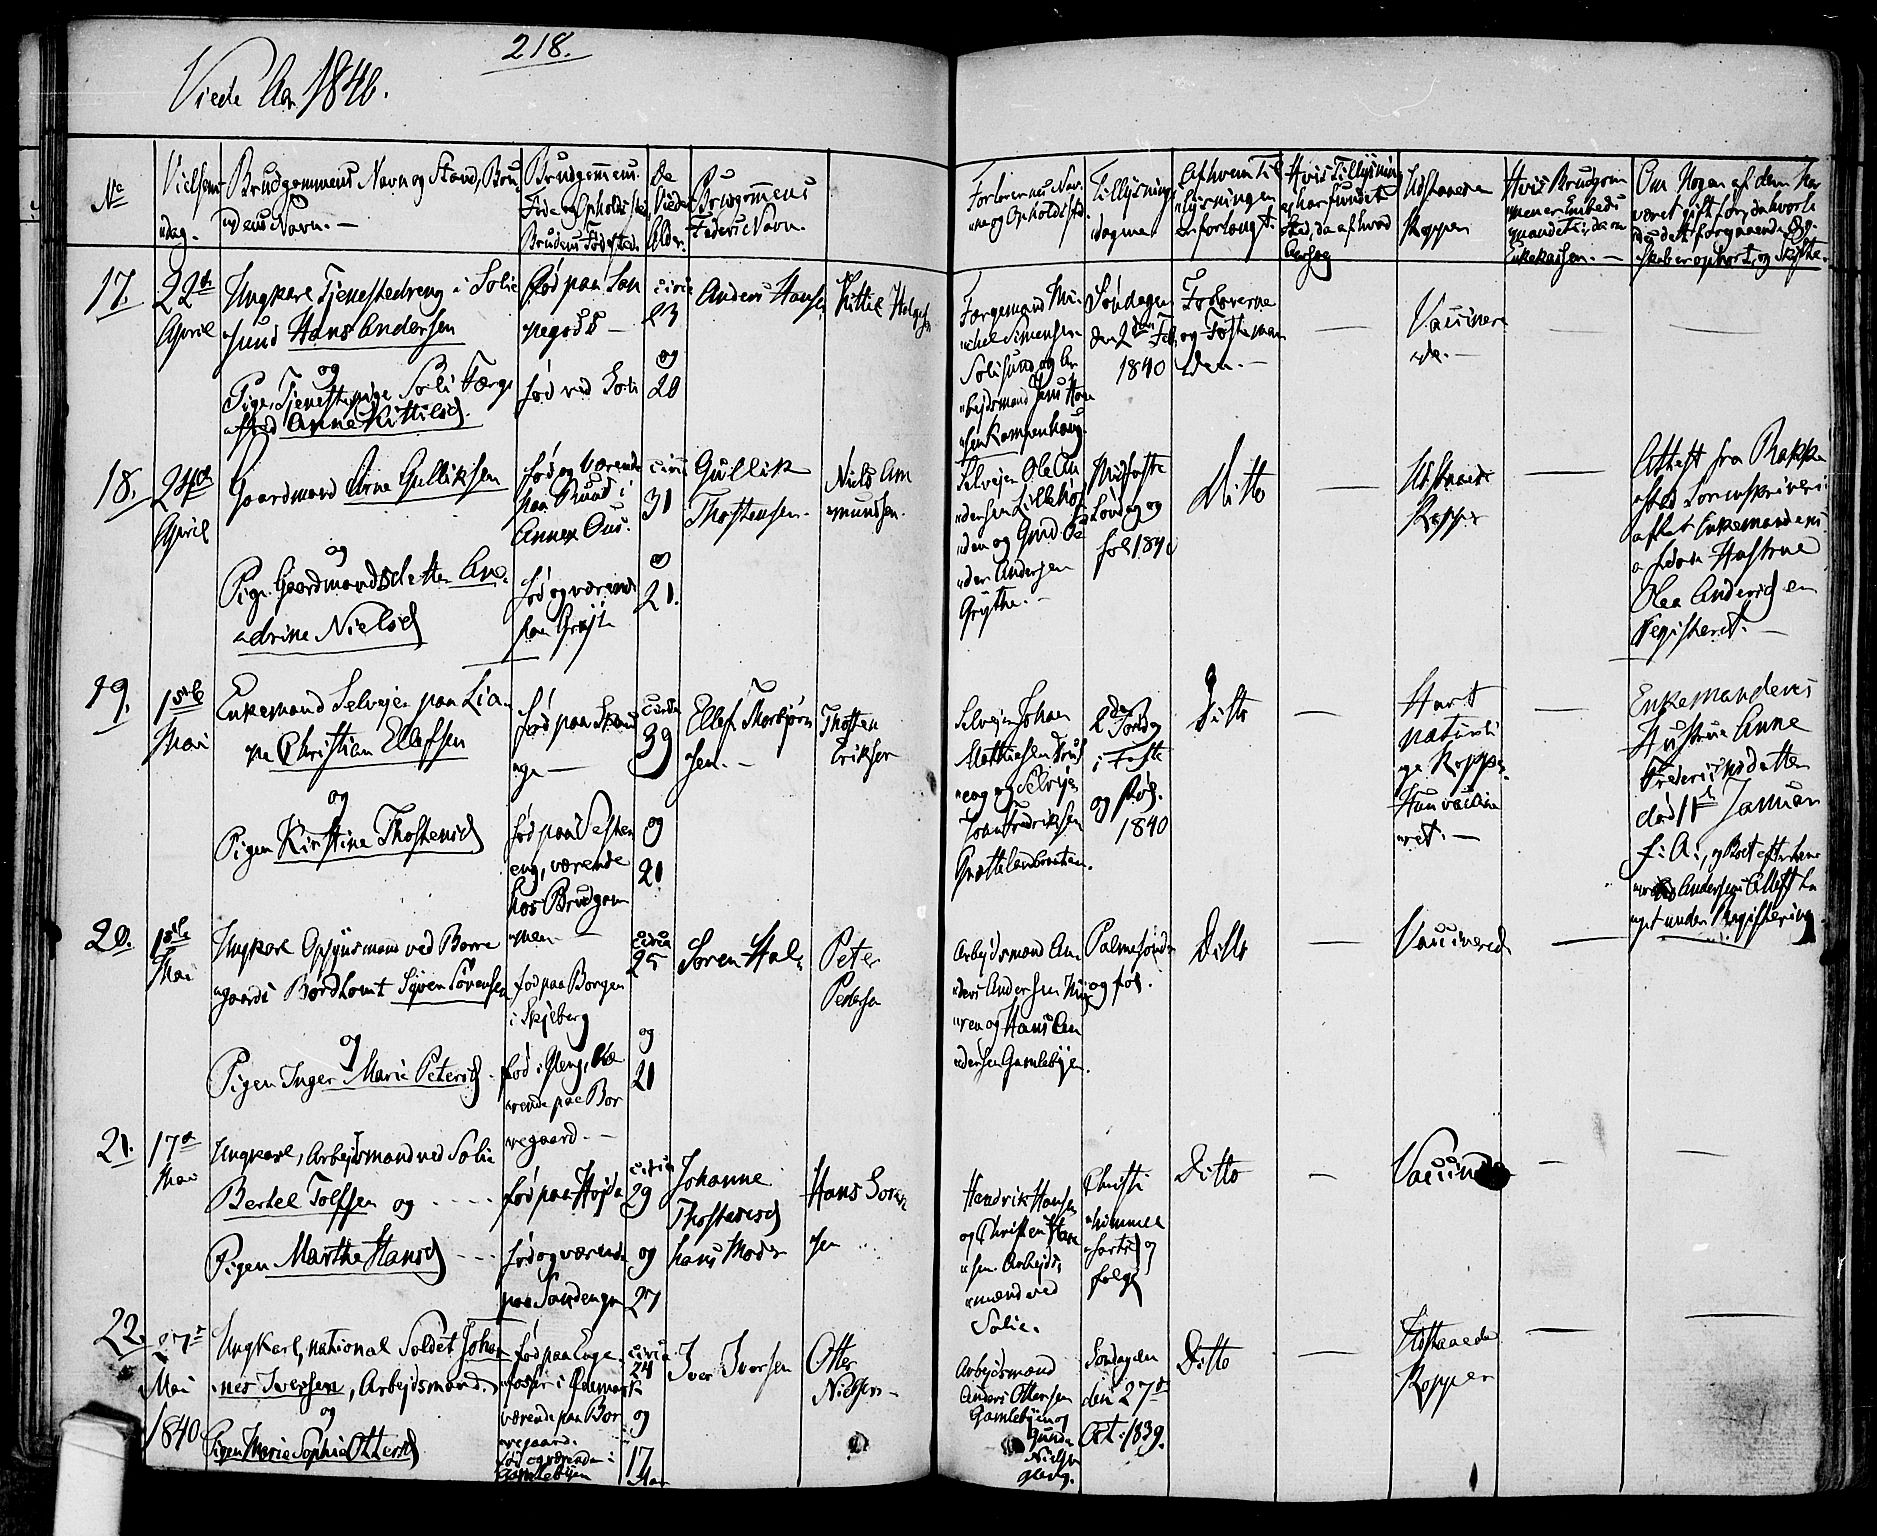 218.
Viede Aar 1840.
No
Vielsens
Dag.
Brudgommens Navn og Stand, Bru
dens Navn.
Brudgommens
Føde og Opholdssted
Brudens Fødested.
De
Viedes
Alder.
Brudgommens
Faders Navn.
Forlovernes Nav
ne og Opholdssted
Tillysnings
dagene
Af hvem Til
lysningen
er forlangt.
Hvis Tillysning
ei har fundet
Sted, da af hvad
Aarsag
Udstandne
Kopper
Hvis Brudgom
men er Embeds
mand
Enkekassen.
Om Nogen af dem har
været gift før, da hvorle
des det forgaaende Ægte
skab er ophørt, og Skifte
17.
22de
April
Ungkarl Tjenestedreng i Solie
sund Hans Andersen
og
Pige, Tjenestepige Soli Færge
sted Anne Kittilsd.
født paa San
negods
født ved Soli
circa
23
og
20
Anders Hansen
Kittil Helgesen
Færgemand Mi
chel Simensen
Solisund og Ar
bejdsmand Jens Han
sen Kampenhaug.
Søndagen
den 2den Feb.
1840
Forloverne
og Fæsteman
den.
Vaccinere
de.
18.
24de
April
Gaardmand Arne Gulliksen
og
Pige Gaardmandsdatter An
drine Nielsd
født og værende
paa Ruud i
Annex Ous.
født og værende
paa Gryte
circa
31
og
21.
Gullik
Thostensen.
Niels Am
undsen.
Selvejer Ole An
dersen Lillehøj
den og Gmd. Pe
der Andersen
Grythe.
Midfaste
Søndag og
føl 1840
Ditto
Udstaaede
Kopper
Attest fra Rakke
stad Sorenskriveri
at Enkemandens
Hustrue
Olea Andersd en
registeret.
19.
1ste
Mai
Enkemand Selvejer paa Lia
ne Christian Ellefsen
og
Pigen Kirstine Thostensd
født paa
født paa Vesten
eng, værende
hos Brudgom
men
circa
39
og
21
Ellef Thorbjørn
sen.
Thosten
Eriksen
Selvejer Johan
Matthiesen
og Selvejer
Johan Fredriksen
Grøtteland
2den Søndag
i Faste
og føl.
1840
Ditto
Havt
naturli
ge Kopper.
Hun vaccine
ret.
Enkemandens
Hustrue Anne
Frederiksdatter
død 11te Januar
f. A., og Boet efter hen
Andersens Attest ta
get under Registering
20.
1ste
Mai
Ungkarl Opsynsmand ved Borre
gaards Bordtomt Syver Sørensen
og
Pigen Inger Marie Petersd.
født paa Borgen
i Skjeberg
født i Gleng, væ
rende paa Bor
regaard.
circa
25
og
21
Søren Hals
Peter
Pedersen
Arbejdsmand An
ders Andersen
ren og Hans An
dersen Gamlebyen.
Palmesønd.
og føl.
Ditto
Vaccinered
21.
17de
Mai
Ungkarl, Arbejdsmand ved Solie
Bertel Tolfsen og
Pigen Marthe Hansd
født paa Høida
født og værende
paa Sandengen
circa
29
og
27
Johanne
Thostensd
hans Moder
Hans Soren
sen
Hendrik Hansen
og Christen Han
sen Arbejds
mænd ved
Solie.
Christi
himmel
fartsd og
følg
Ditto
Vaccinered
22.
27de
Mai
1840
Ungkarl, national Soldat Johan
nes Iversen, Arbejdsmand.
og
Pigen Marie Sophie Ottersd
født paa Enge
i Ødemark
værende paa Bor
regaard.
født og værende i
Gamlebyen
circa
24
og
17
Aar
Iver Iversen
Otter
Nielsen
Arbejdsmand
Anders Ottersen
Gamlebyen og
Gunder
Nielsen
Glenge.
Søndagen
den 27de
Oct. 1839.
Ditto
Udstaaede
Kopper